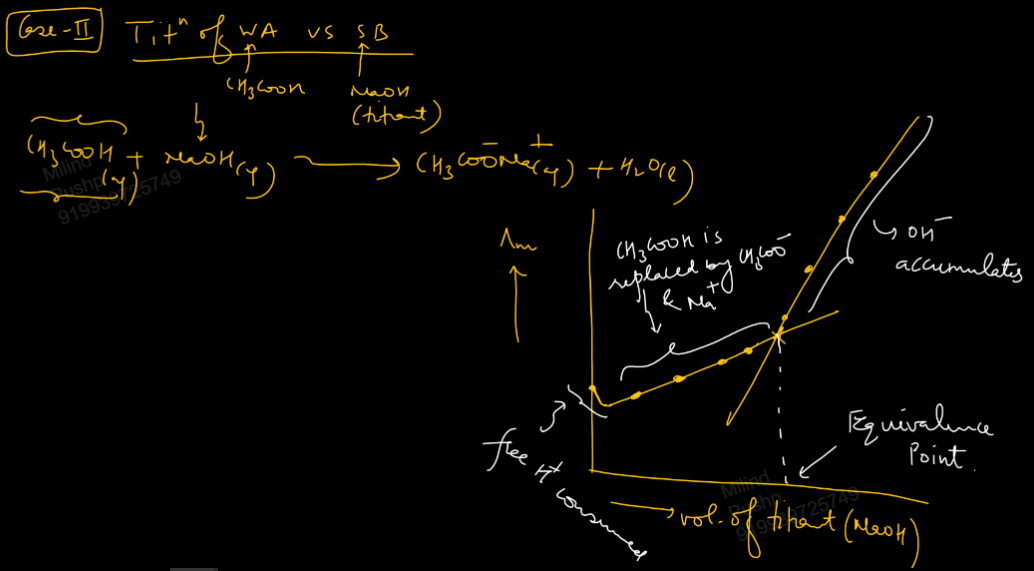 Case-II Titⁿ of WA vs SB
CH3COOH NaOH
(titrant)
CH3COOH(aq) + NaOH(aq) → CH3COO⁻Na⁺(aq) + H2O(l)
Milind
Pushp
919939725749
Λm
CH3COOH is
replaced by CH3COO⁻
& Na⁺
OH⁻
accumulates
free H⁺ consumed
Equivalence
Point.
Milind
Pushp
919939725749
→ vol. of titrant (NaOH)